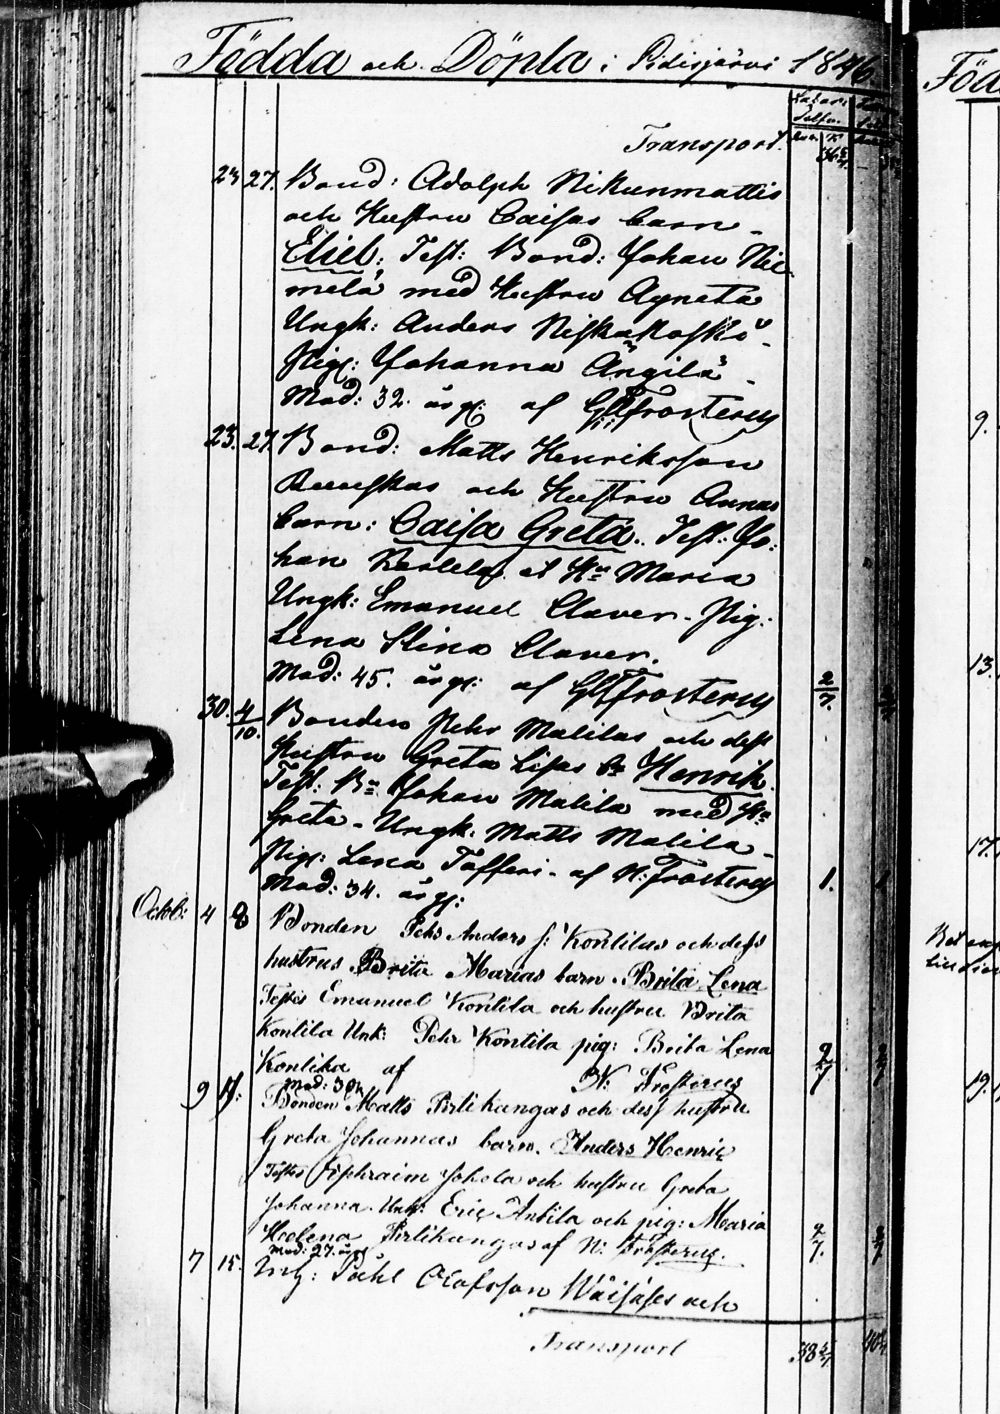 Födda och Döpta i Pidisjärvi 1846
Transport.
23 27. Bond: Adolph Nikunmattis
och Hustru Caisas barn
Eliel; Test: Bond: Johan Nie-
melä med Hustru Agneta
Ungk: Anders Niskakoski
Pig: Johanna Ängilä
Mod: 32. år gl: af GHFrosterus
23. 27. Bond: Matts Henriksson
och Hustru Annas
barn: Caisa Greta. Test: Jo-
han et Hu Maria
Ungk: Emanuel Claver. Pig:
Lena Stina Claver.
Mod: 45. år gl: af GHFrosterus 2/7.
30. 4/10. Bonden Pehr Malilas och dess
Hustru Greta Lisas bn Henrik.
Test: Bn Johan Malila med Hu
Greta. Ungk: Matts Malila
Pig: Lena Tofferi. af N: Frosterus 1.
Mod: 34. år gl:
Octob: 4 8 Bonden Pehr Anders s: Kontilas och dess
hustrus Brita Marias barn. Brita Lena
Testes Emanuel Kontila och hustru Brita
Kontila Unk: Pehr Kontila pig: Brita Lena
Kontika af N: Frosterus 2/7
mod: 30
9 11: Bonden Matts Pirlikangas och dess hustru
Greta Johannas barn. Anders Henric
Testes Ephraim Johola och hustru Greta
Johanna. Unk: Eric Antila och pig: Maria
Helena Pirlikangas af N: Frosterus. 2/7.
mod: 27. år gl
7 15. Påhl Olofsson Wäisäses och
Transport 38 5/7